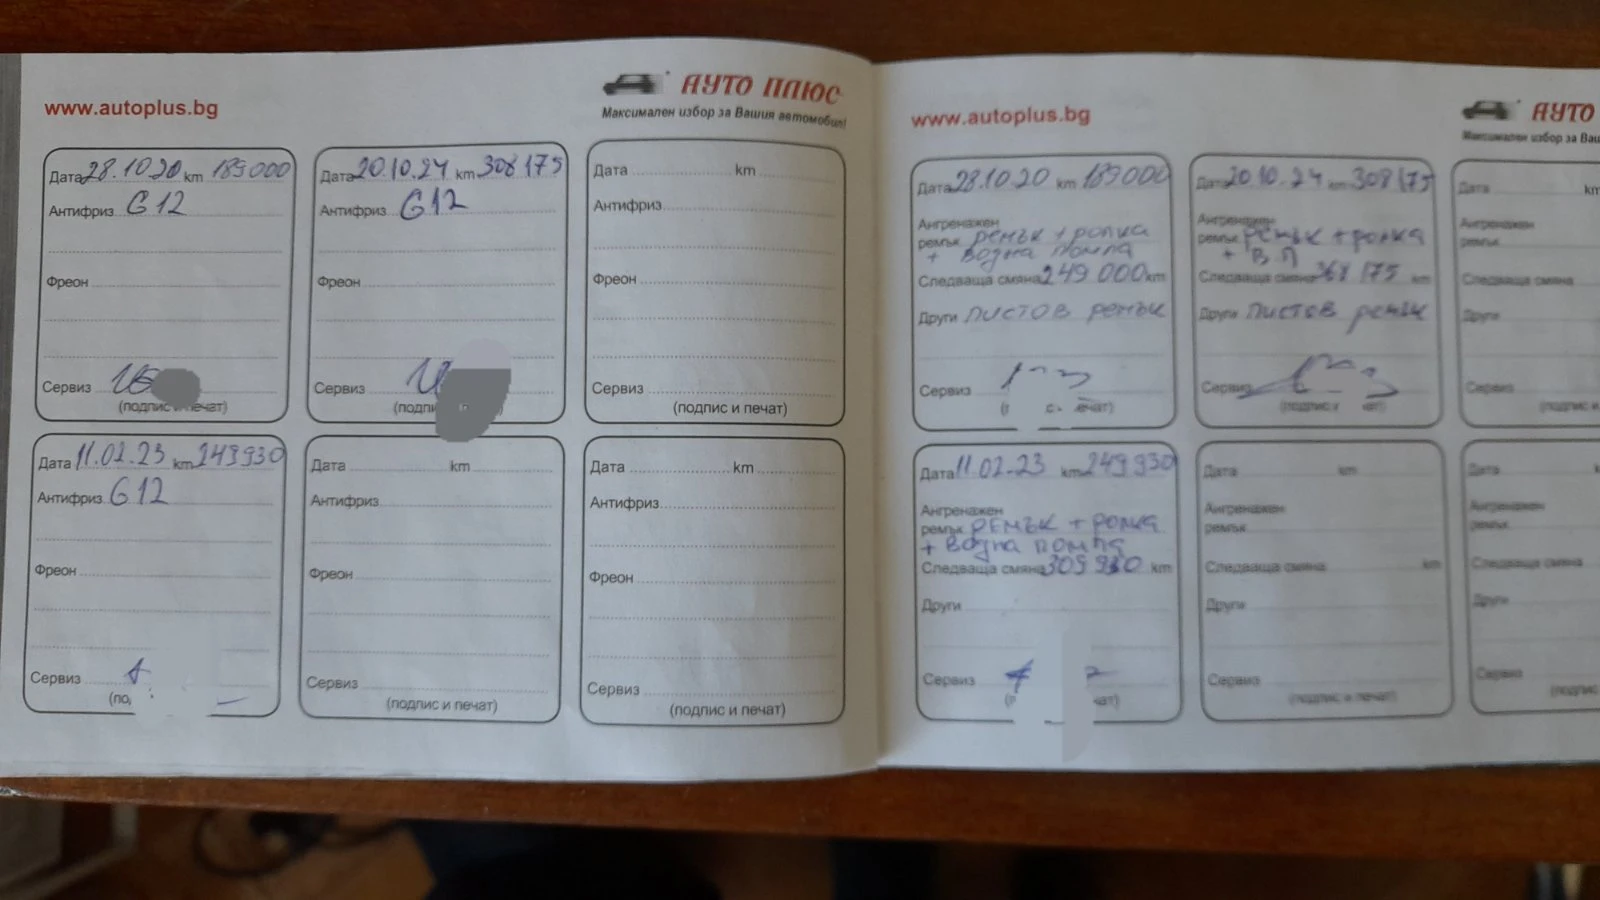 www.autoplus.bg
АУТО ПЛЮС
Максимален избор за Вашия автомобил!
Дата 28.10.20 km 189000
Антифриз G12
Фреон
Сервиз
(подпис и печат)
Дата 20.10.24 km 308175
Антифриз G12
Фреон
Сервиз
(подпи
Дата km
Антифриз
Фреон
Сервиз
(подпис и печат)
Дата 11.02.23 km 249930
Антифриз G12
Фреон
Сервиз
(по
Дата km
Антифриз
Фреон
Сервиз
(подпис и печат)
Дата km
Антифриз
Фреон
Сервиз
(подпис и печат)
www.autoplus.bg
АУТО
Максимален избор за Ваш
Дата 28.10.20 km 189000
Ангренажен
ремък ремък + ролка
+ водна помпа
Следваща смяна 249 000 km
Други пистов ремък
Сервиз
ечат)
Дата 20.10.24 km 308175
Ангренажен
ремък ремък + ролка
+ В.П
Следваща смяна 368 175 km
Други пистов ремък
Сервиз
(подпис ат)
Дата km
Ангренажен
ремък
Следваща смяна
Други
Сервиз
(подпис
Дата 11.02.23 km 249930
Ангренажен
ремък ремък + ролка
+ водна помпа
Следваща смяна 309 930 km
Други
Сервиз
чат)
Дата km
Ангренажен
ремък
Следваща смяна km
Други
Сервиз
(подпис и печат)
Дата
Ангренажен
ремък
Следваща смяна
Други
Сервиз
(подпис